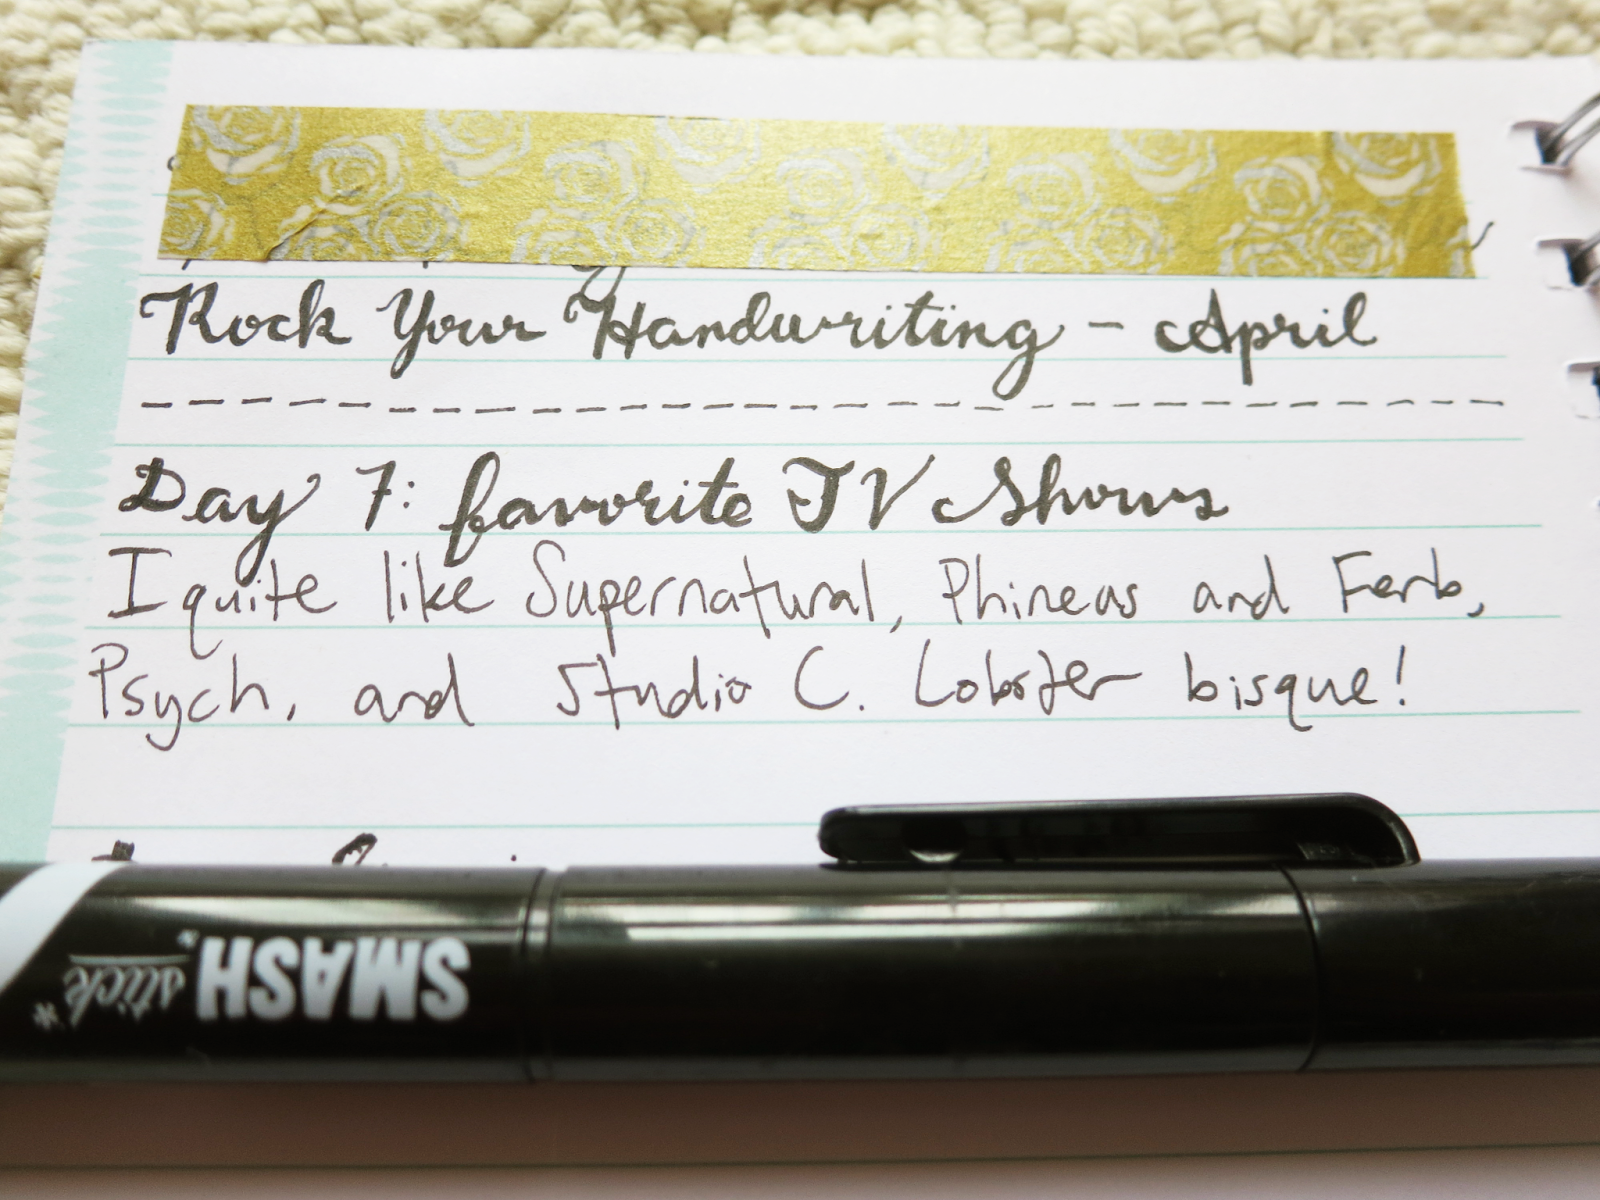 Rock Your Handwriting - April
Day 7: favorite TV Shows
I quite like Supernatural, Phineas and Ferb,
Psych, and Studio C. Lobster bisque!
SMASH
stick*